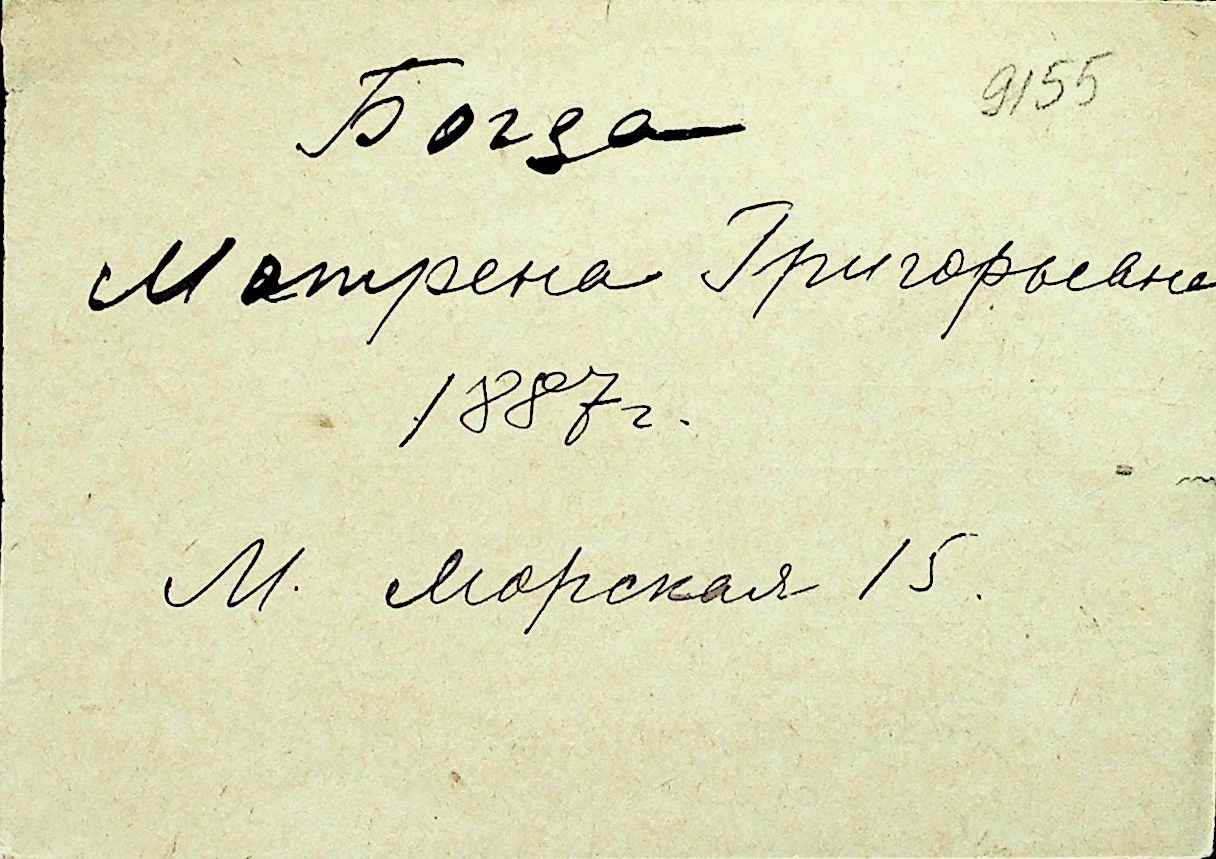 9155
Богда
Матрена Григорьевна
1887 г.
М. Морская 15.